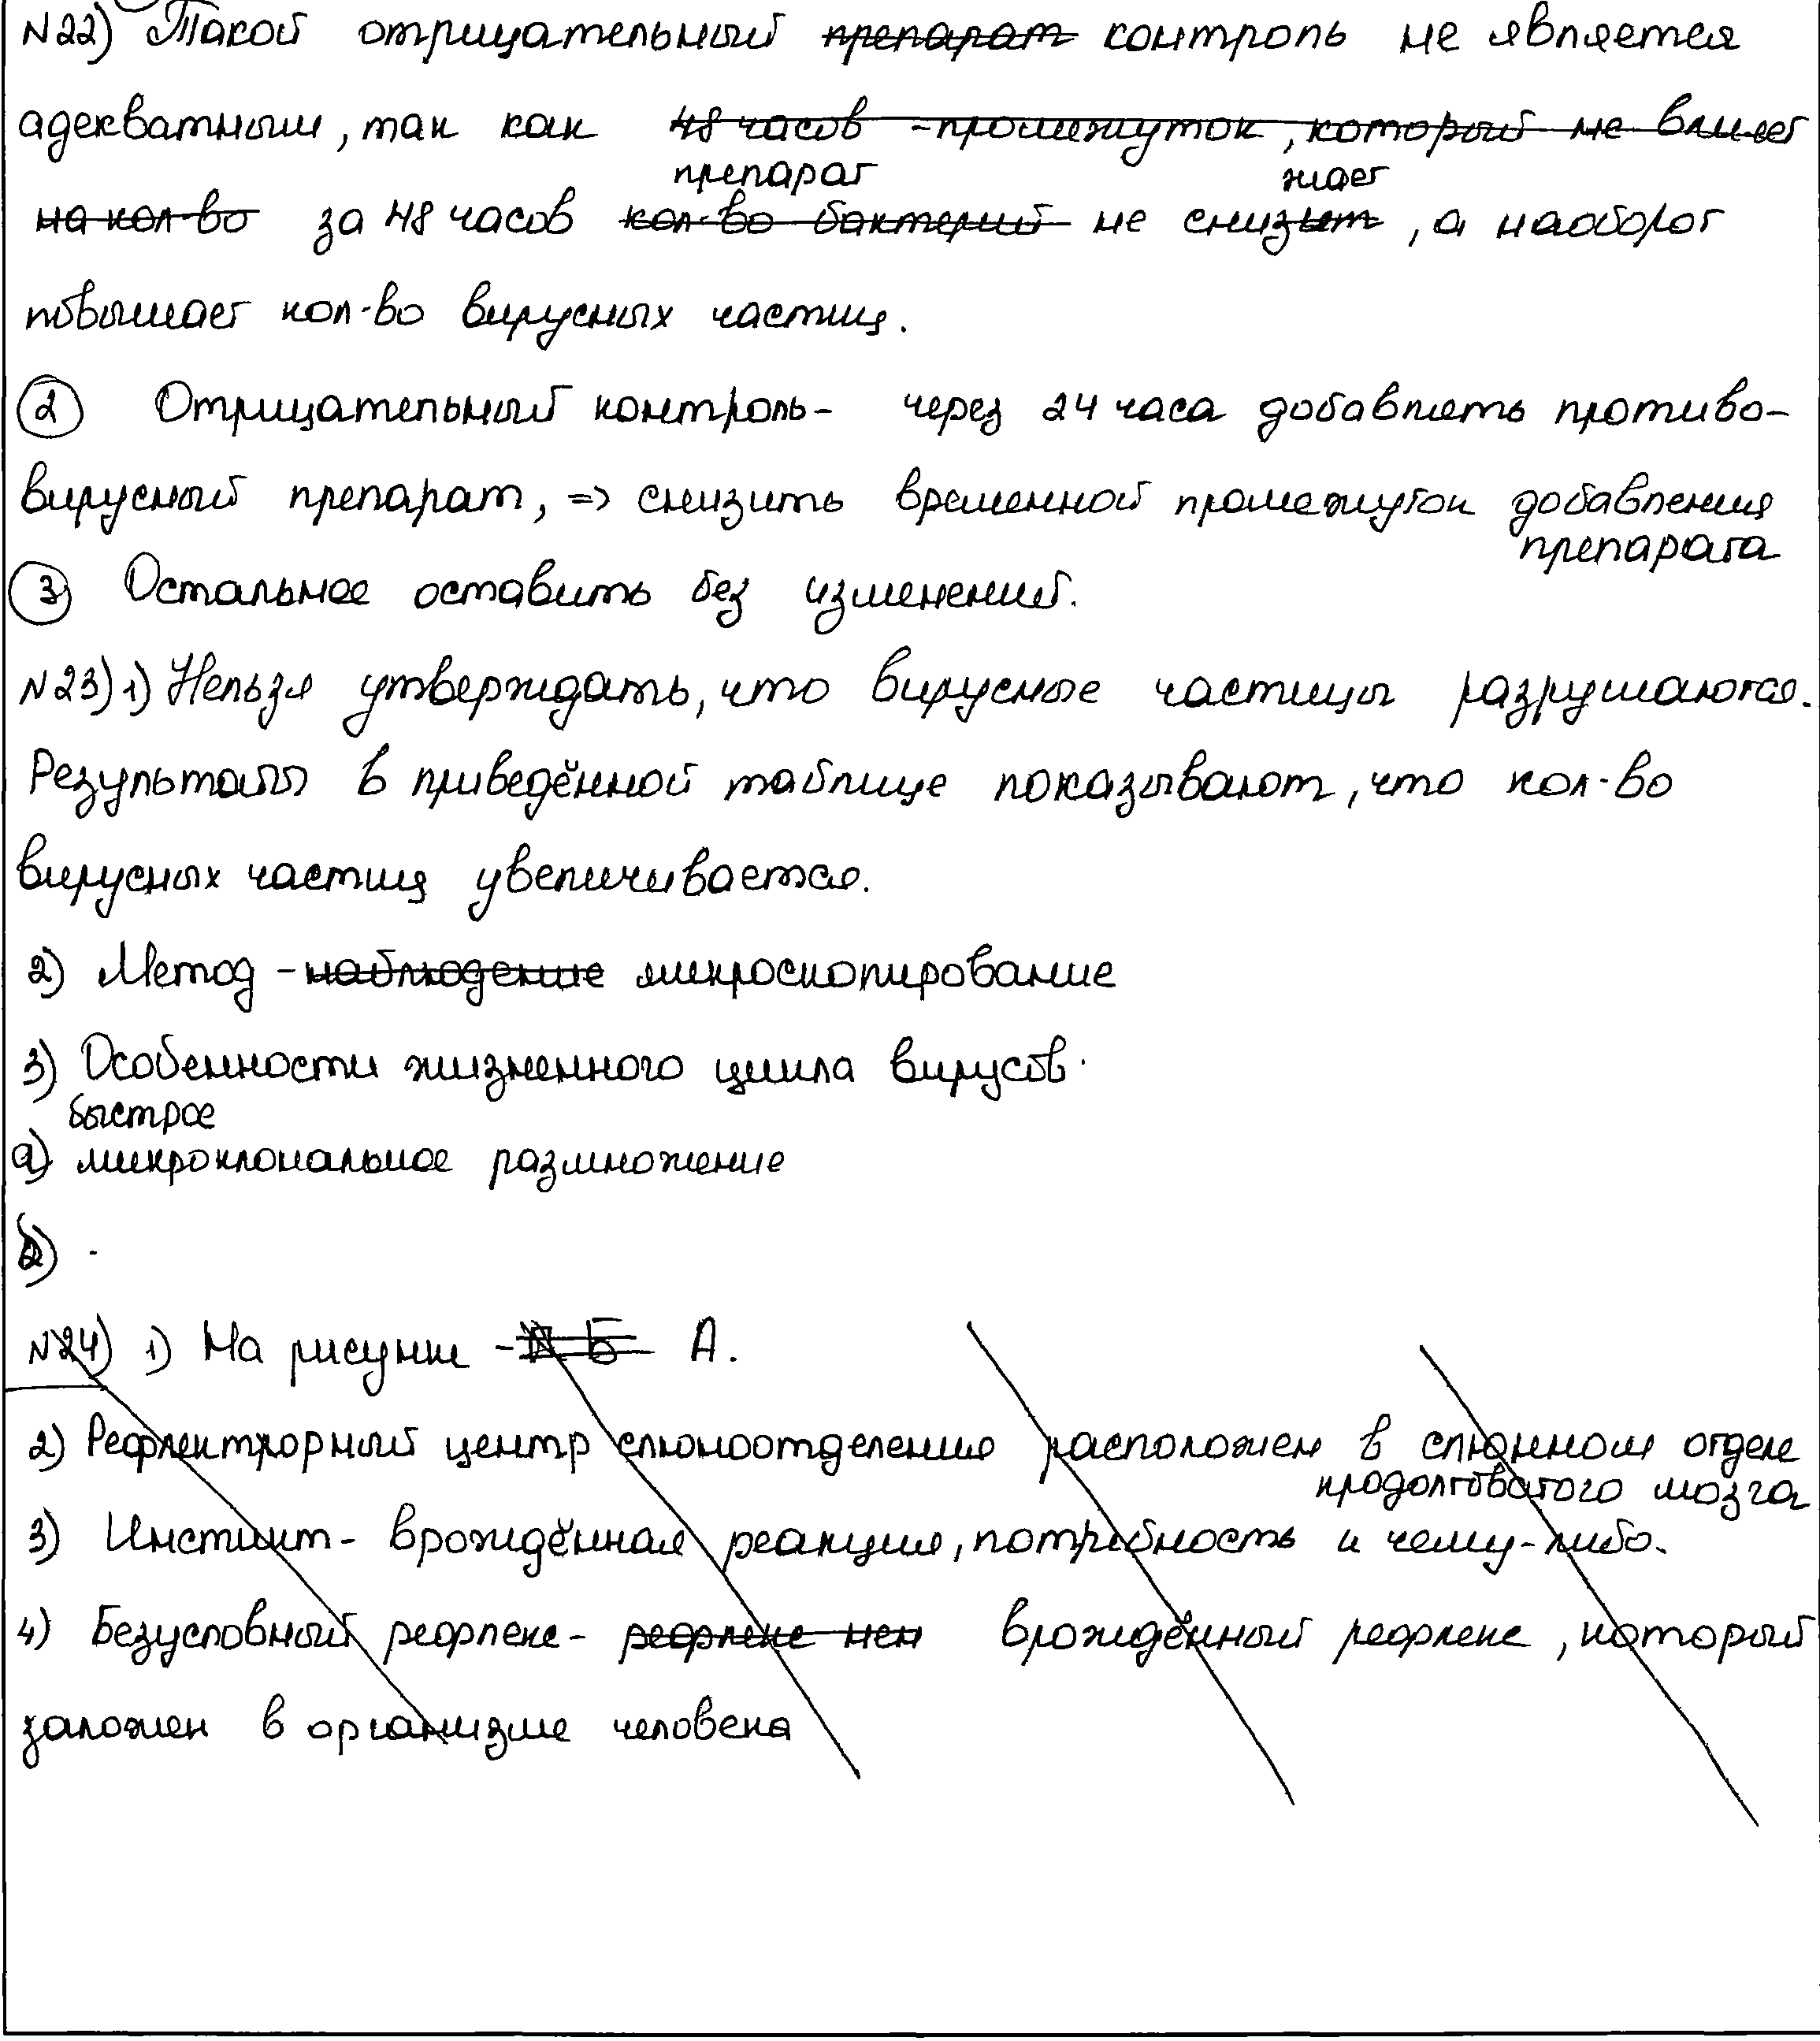 №22) Такой отрицательный препарат контроль не является
адекватным, так как 48 часов - промежуток, который не влияет
препарат жает
на кол-во за 48 часов кол-во бактерий не снизит, а наоборот
повышает кол-во вирусных частиц.
2 Отрицательный контроль- через 24 часа добавлять противо-
вирусный препарат, => снизить временной промежуток добавления
препарата
3 Остальное оставить без изменений.
№23) 1) Нельзя утверждать, что вирусные частицы разрушаются.
Результаты в приведённой таблице показывают, что кол-во
вирусных частиц увеличивается.
2) Метод - наблюдение микроскопирование
3) Особенности жизненного цикла вирусов.
быстрое
а) микроклональное размножение
2) .
№24) 1) На рисунке - Б А.
2) Рефлекторный центр слюноотделения расположен в слюнном отделе
продолговатого мозга
3) Инстинкт- врождённая реакция, потребность к чему-либо.
4) Безусловный рефлекс- рефлекс врождённый рефлекс, который
заложен в организме человека